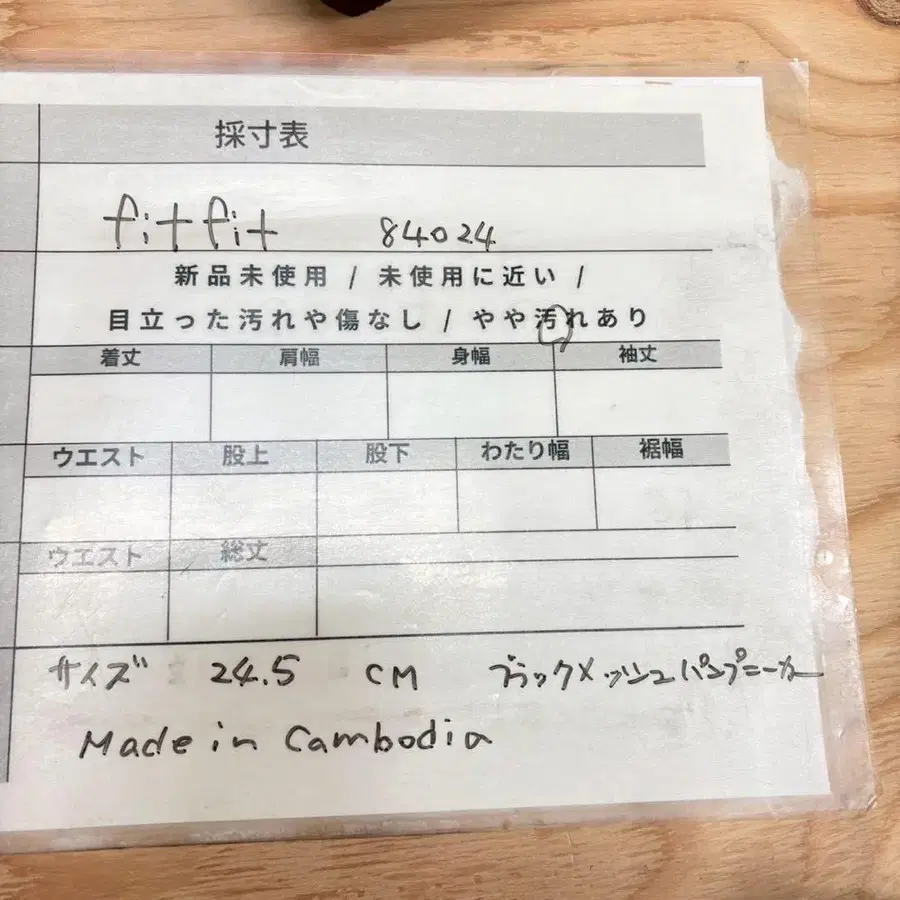 採寸表
fitfit 84024
新品未使用 / 未使用に近い /
目立った汚れや傷なし / やや汚れあり
着丈 肩幅 身幅 袖丈
ウエスト 股上 股下 わたり幅 裾幅
ウエスト 総丈
サイズ 24.5 CM ブラックメッシュパンプニーカー
Made in Cambodia